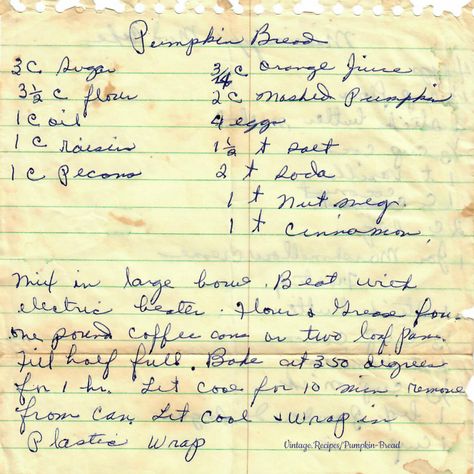 Pumpkin Bread
3 c Sugar
3 1/2 c flour
1 c oil
1 c raisin
1 c Pecans
3/4 c orange Juice
2 c Mashed Pumpkin
4 eggs
1 1/2 t salt
2 t soda
1 t Nutmeg.
1 t Cinnamon.
Mix in large bowl. Beat with
electric beater. Flour & Grease four
one pound coffee cans or two loaf pans.
Fill half full. Bake at 350 degrees
for 1 hr. Let cool for 10 min. remove
from can. Let cool & wrap in
Plastic Wrap
Vintage.Recipes/Pumpkin-Bread